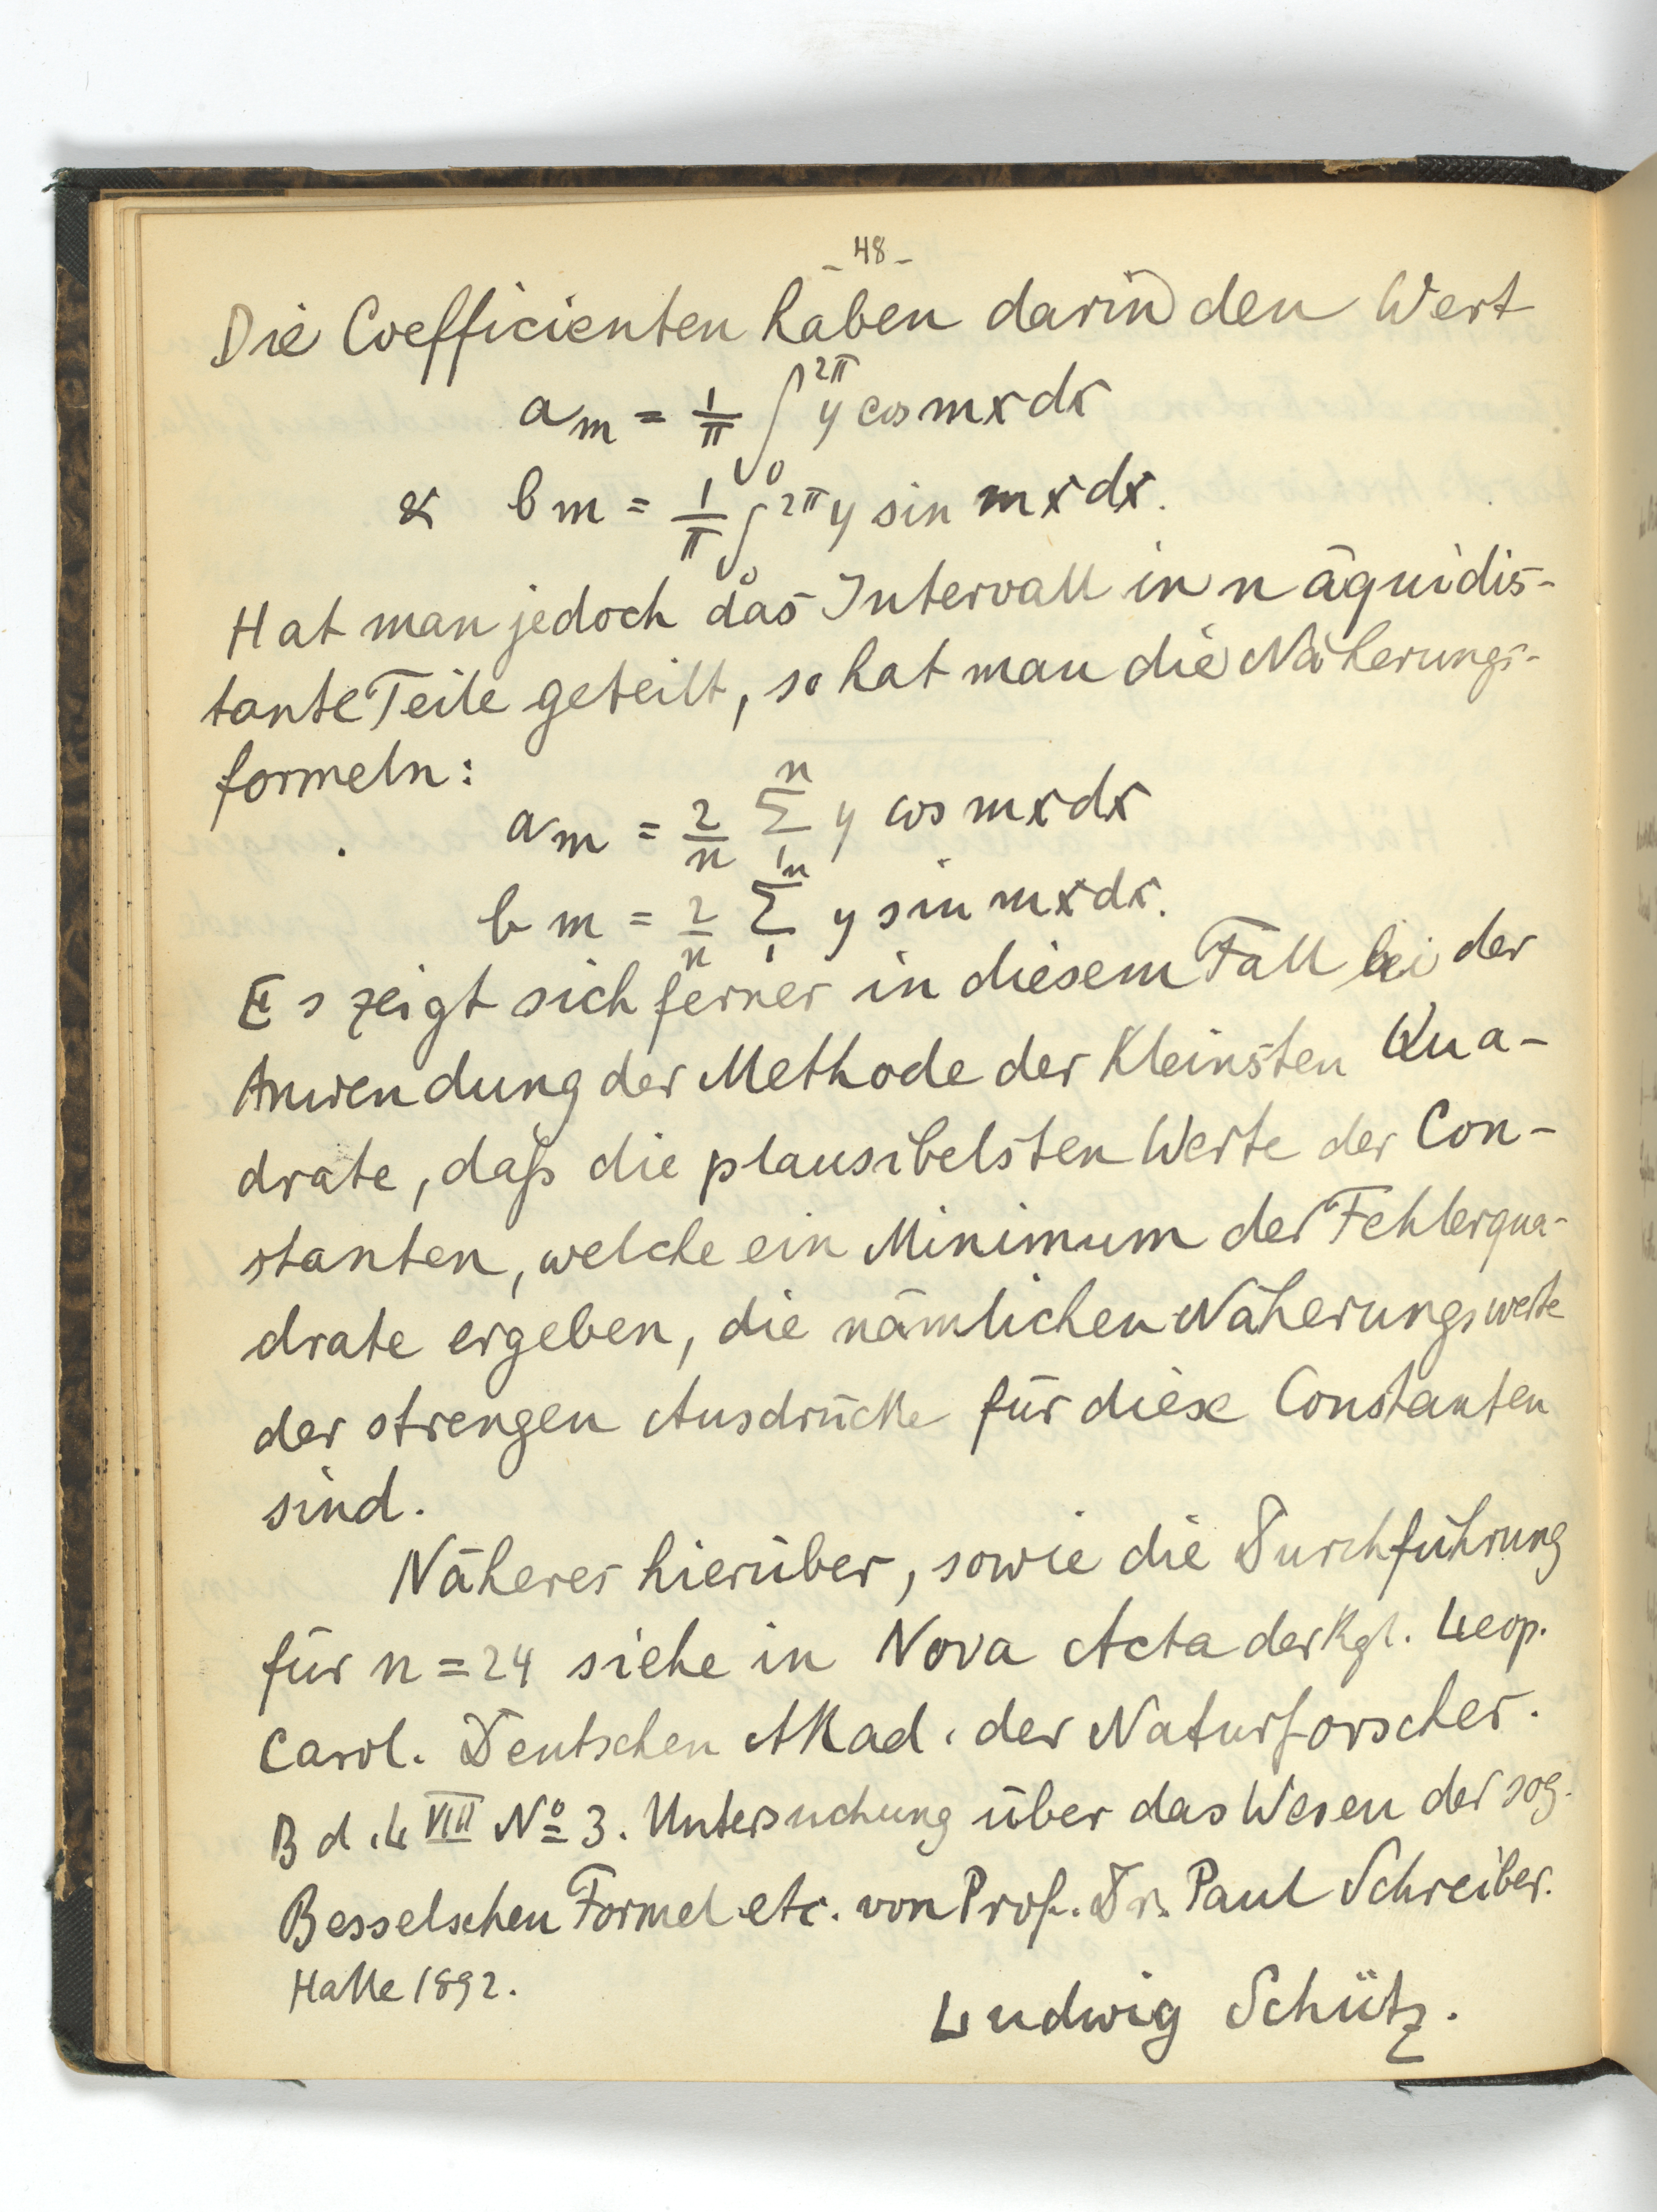 - 48 -
Die Coefficienten haben darin den Wert
a_m = 1/π ∫_0^{2π} y cos mx dx
& b_m = 1/π ∫_0^{2π} y sin mx dx.
Hat man jedoch das Intervall in n äquidis-
tante Teile geteilt, so hat man die Näherungs-
formeln:
a_m = 2/n Σ_1^n y cos mx dx
b_m = 2/n Σ_1^n y sin mx dx.
Es zeigt sich ferner in diesem Fall bei der
Anwendung der Methode der Kleinsten Qua-
drate, daß die plausibelsten Werte der Con-
stanten, welche ein Minimum der Fehlerqua-
drate ergeben, die nämlichen Näherungswerte
der strengen Ausdrücke für diese Constanten
sind.
Näheres hierüber, sowie die Durchführung
für n = 24 siehe in Nova Acta der Kgl. Leop.
Carol. Deutschen Akad. der Naturforscher.
Bd. LVIII No 3. Untersuchung über das Wesen der sog.
Besselschen Formel etc. von Prof. Dr. Paul Schreiber.
Halle 1892.
Ludwig Schütz.